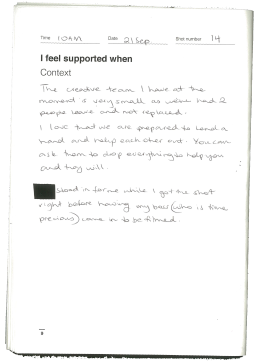 Time 10AM Date 21 Sep Shot number 14
I feel supported when
Context
The creative team I have at the
moment is very small as we've had 2
people leave and not replaced.
I love that we are prepared to lend a
hand and help each other out. You can
ask them to drop everything to help you
and they will.
stood in for me while I got the shot
right before having my boss (who is time
precious) come in to be filmed.